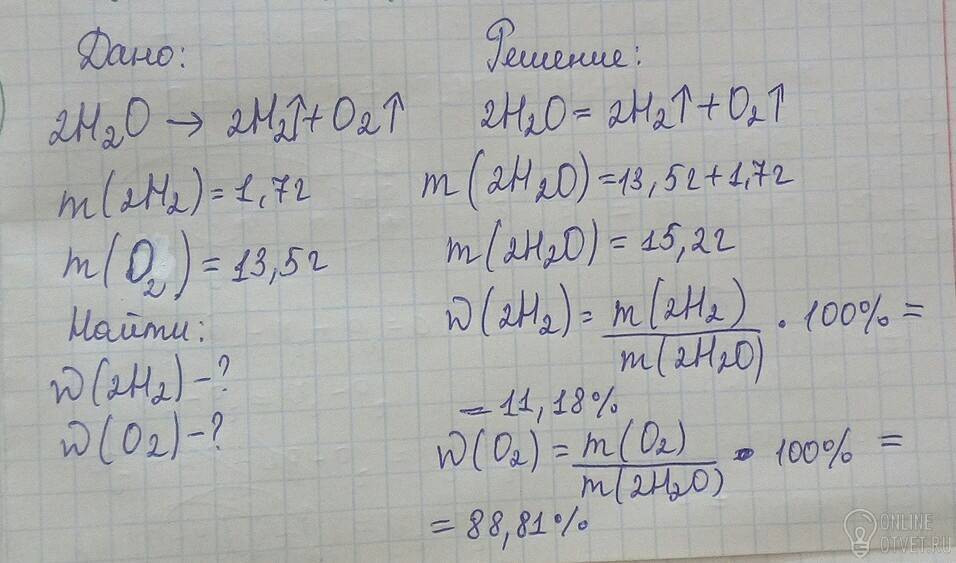 Дано:
2H₂O → 2H₂↑+O₂↑
m(2H₂)=1,7г
m(O₂)=13,5г
Найти:
W(2H₂)-?
W(O₂)-?
Решение:
2H₂O=2H₂↑+O₂↑
m(2H₂O)=13,5г+1,7г
m(2H₂O)=15,2г
W(2H₂)= m(2H₂)/m(2H₂O) · 100% =
=11,18%
W(O₂)= m(O₂)/m(2H₂O) · 100% =
=88,81%
ONLINE
OTVET.RU